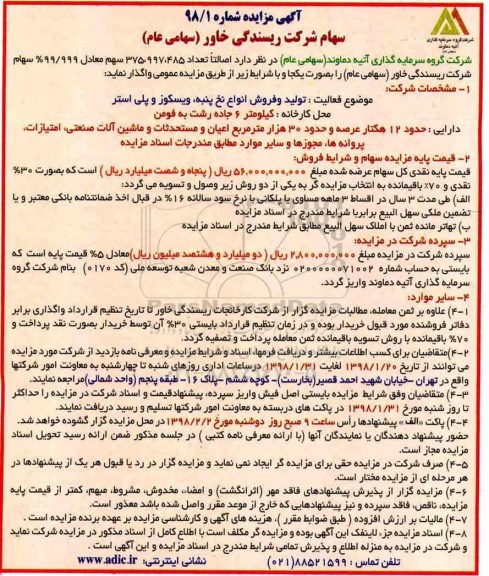 آگهی مزایده شماره ۹۸/۱
سهام شرکت ریسندگی خاور (سهامی عام)
شرکت گروه سرمایه گذاری
آتیه دماوند
شرکت گروه سرمایه گذاری آتیه دماوند(سهامی عام) در نظر دارد اصالتاً تعداد ۳۷۵،۹۹۷،۴۸۵ سهم معادل ۹۹/۹۹۹% سهام
شرکت ریسندگی خاور (سهامی عام) را بصورت یکجا و با شرایط زیر از طریق مزایده عمومی واگذار نماید:
۱- مشخصات شرکت:
موضوع فعالیت : تولید وفروش انواع نخ پنبه، ویسکوز و پلی استر
محل کارخانه : کیلومتر ۶ جاده رشت به فومن
دارایی : حدود ۱۲ هکتار عرصه و حدود ۳۰ هزار مترمربع اعیان و مستحدثات و ماشین آلات صنعتی، امتیازات،
پروانه ها، مجوزها و سایر موارد مطابق مندرجات اسناد مزایده
۲- قیمت پایه مزایده سهام و شرایط فروش:
قیمت پایه نقدی کل سهام عرضه شده مبلغ ۵۶,۰۰۰,۰۰۰,۰۰۰ ریال ( پنجاه و شصت میلیارد ریال ) است که بصورت ۳۰%
نقدی و ۷۰% باقیمانده به انتخاب مزایده گر به یکی از دو روش زیر وصول و تسویه می گردد:
الف) طی مدت ۳ سال در اقساط ۳ ماهه مساوی یا پلکانی با نرخ سود سالانه ۱۶% در قبال اخذ ضمانتنامه بانکی معتبر و یا
تضمین ملکی سهل البیع برابربا شرایط مندرج در اسناد مزایده
ب) تهاتر مانده ثمن با املاک سهل البیع مطابق شرایط مندرج در اسناد مزایده
۳- سپرده شرکت در مزایده:
سپرده شرکت در مزایده مبلغ ۲,۸۰۰,۰۰۰,۰۰۰ ریال ( دو میلیارد و هشتصد میلیون ریال)معادل ۵% قیمت پایه است که
بایستی به حساب شماره ۰۲۰۰۰۰۰۰۷۱۰۰۲ نزد بانک صنعت و معدن شعبه توسعه ملی (کد ۰۱۷۰) بنام شرکت گروه
سرمایه گذاری آتیه دماوند واریز گردد.
۴- سایر موارد:
۴-۱) علاوه بر ثمن معامله، مطالبات مزایده گزار از شرکت کارخانجات ریسندگی خاور تا تاریخ تنظیم قرارداد واگذاری برابر
دفاتر فروشنده مورد قبول خریدار بوده و در زمان تنظیم قرارداد بایستی ۳۰% آن توسط خریدار بصورت نقد پرداخت و
۷۰% باقیمانده با روش تسویه باقیمانده ثمن معامله پرداخت و تصفیه گردد.
۴-۲)متقاضیان برای کسب اطلاعات بیشتر و دریافت فرمها، اسناد و شرایط مزایده و معرفی نامه بازدید از شرکت مورد مزایده
می توانند از تاریخ ۱۳۹۸/۱/۲۰ لغایت ۱۳۹۸/۱/۳۱ درساعات اداری روزهای شنبه تا چهارشنبه به معاونت امور شرکتها
واقع در تهران -خیابان شهید احمد قصیر(بخارست)- کوچه ششم -پلاک ۱۶- طبقه پنجم (واحد شمالی)مراجعه نمایند.
۴-۳) متقاضیان وفق شرایط مزایده بایستی اصل فیش واریز سپرده، پیشنهادقیمت و اسناد شرکت در مزایده را حداکثر
تا روز شنبه مورخ ۱۳۹۸/۱/۳۱ در پاکت های دربسته به معاونت امور شرکتها تسلیم و رسید دریافت نمایند.
۴-۴) پاکت «الف» پیشنهادها رأس ساعت ۹ صبح روز دوشنبه مورخ ۱۳۹۸/۲/۲ در محل مزایده گزار گشوده خواهد شد.
حضور پیشنهاد دهندگان یا نمایندگان آنها (با ارائه معرفی نامه کتبی ) در جلسه مذکور ضمن ارائه رسید تحویل اسناد
مزایده مجاز است.
۴-۵) صرف شرکت در مزایده حقی برای مزایده گر ایجاد نمی نماید و مزایده گزار در رد یا قبول هر یک از پیشنهادها در
هر مرحله ای از مزایده مختار است.
۴-۶) مزایده گزار از پذیرش پیشنهادهای فاقد مهر (اثرانگشت) و امضاء، مخدوش، مشروط، مبهم، کمتر از قیمت پایه
مزایده، ناقص، فاقد سپرده و نیز پیشنهادهایی که خارج از موعد مقرر واصل شده باشد معذور است.
۴-۷) مالیات بر ارزش افزوده ( طبق ضوابط مقرر )، هزینه های آگهی و کارشناسی مزایده بر عهده برنده مزایده است .
۴-۸) اسناد مزایده جزء لاینفک این آگهی بوده و مزایده گر مکلف است با اطلاع کامل از اسناد مذکور در مزایده شرکت نماید
و شرکت در مزایده به منزله اطلاع و پذیرش تمامی شرایط مندرج در اسناد مزایده و این آگهی است .
تلفن تماس : ۸۸۵۲۱۵۹۹(۰۲۱) نشانی اینترنتی: www.adic.ir
ParsNamadData